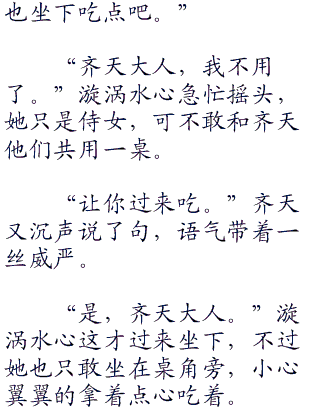 也坐下吃点吧。”
“齐天大人，我不用
了。”漩涡水心急忙摇头，
她只是侍女，可不敢和齐天
他们共用一桌。
“让你过来吃。”齐天
又沉声说了句，语气带着一
丝威严。
“是，齐天大人。”漩
涡水心这才过来坐下，不过
她也只敢坐在桌角旁，小心
翼翼的拿着点心吃着。